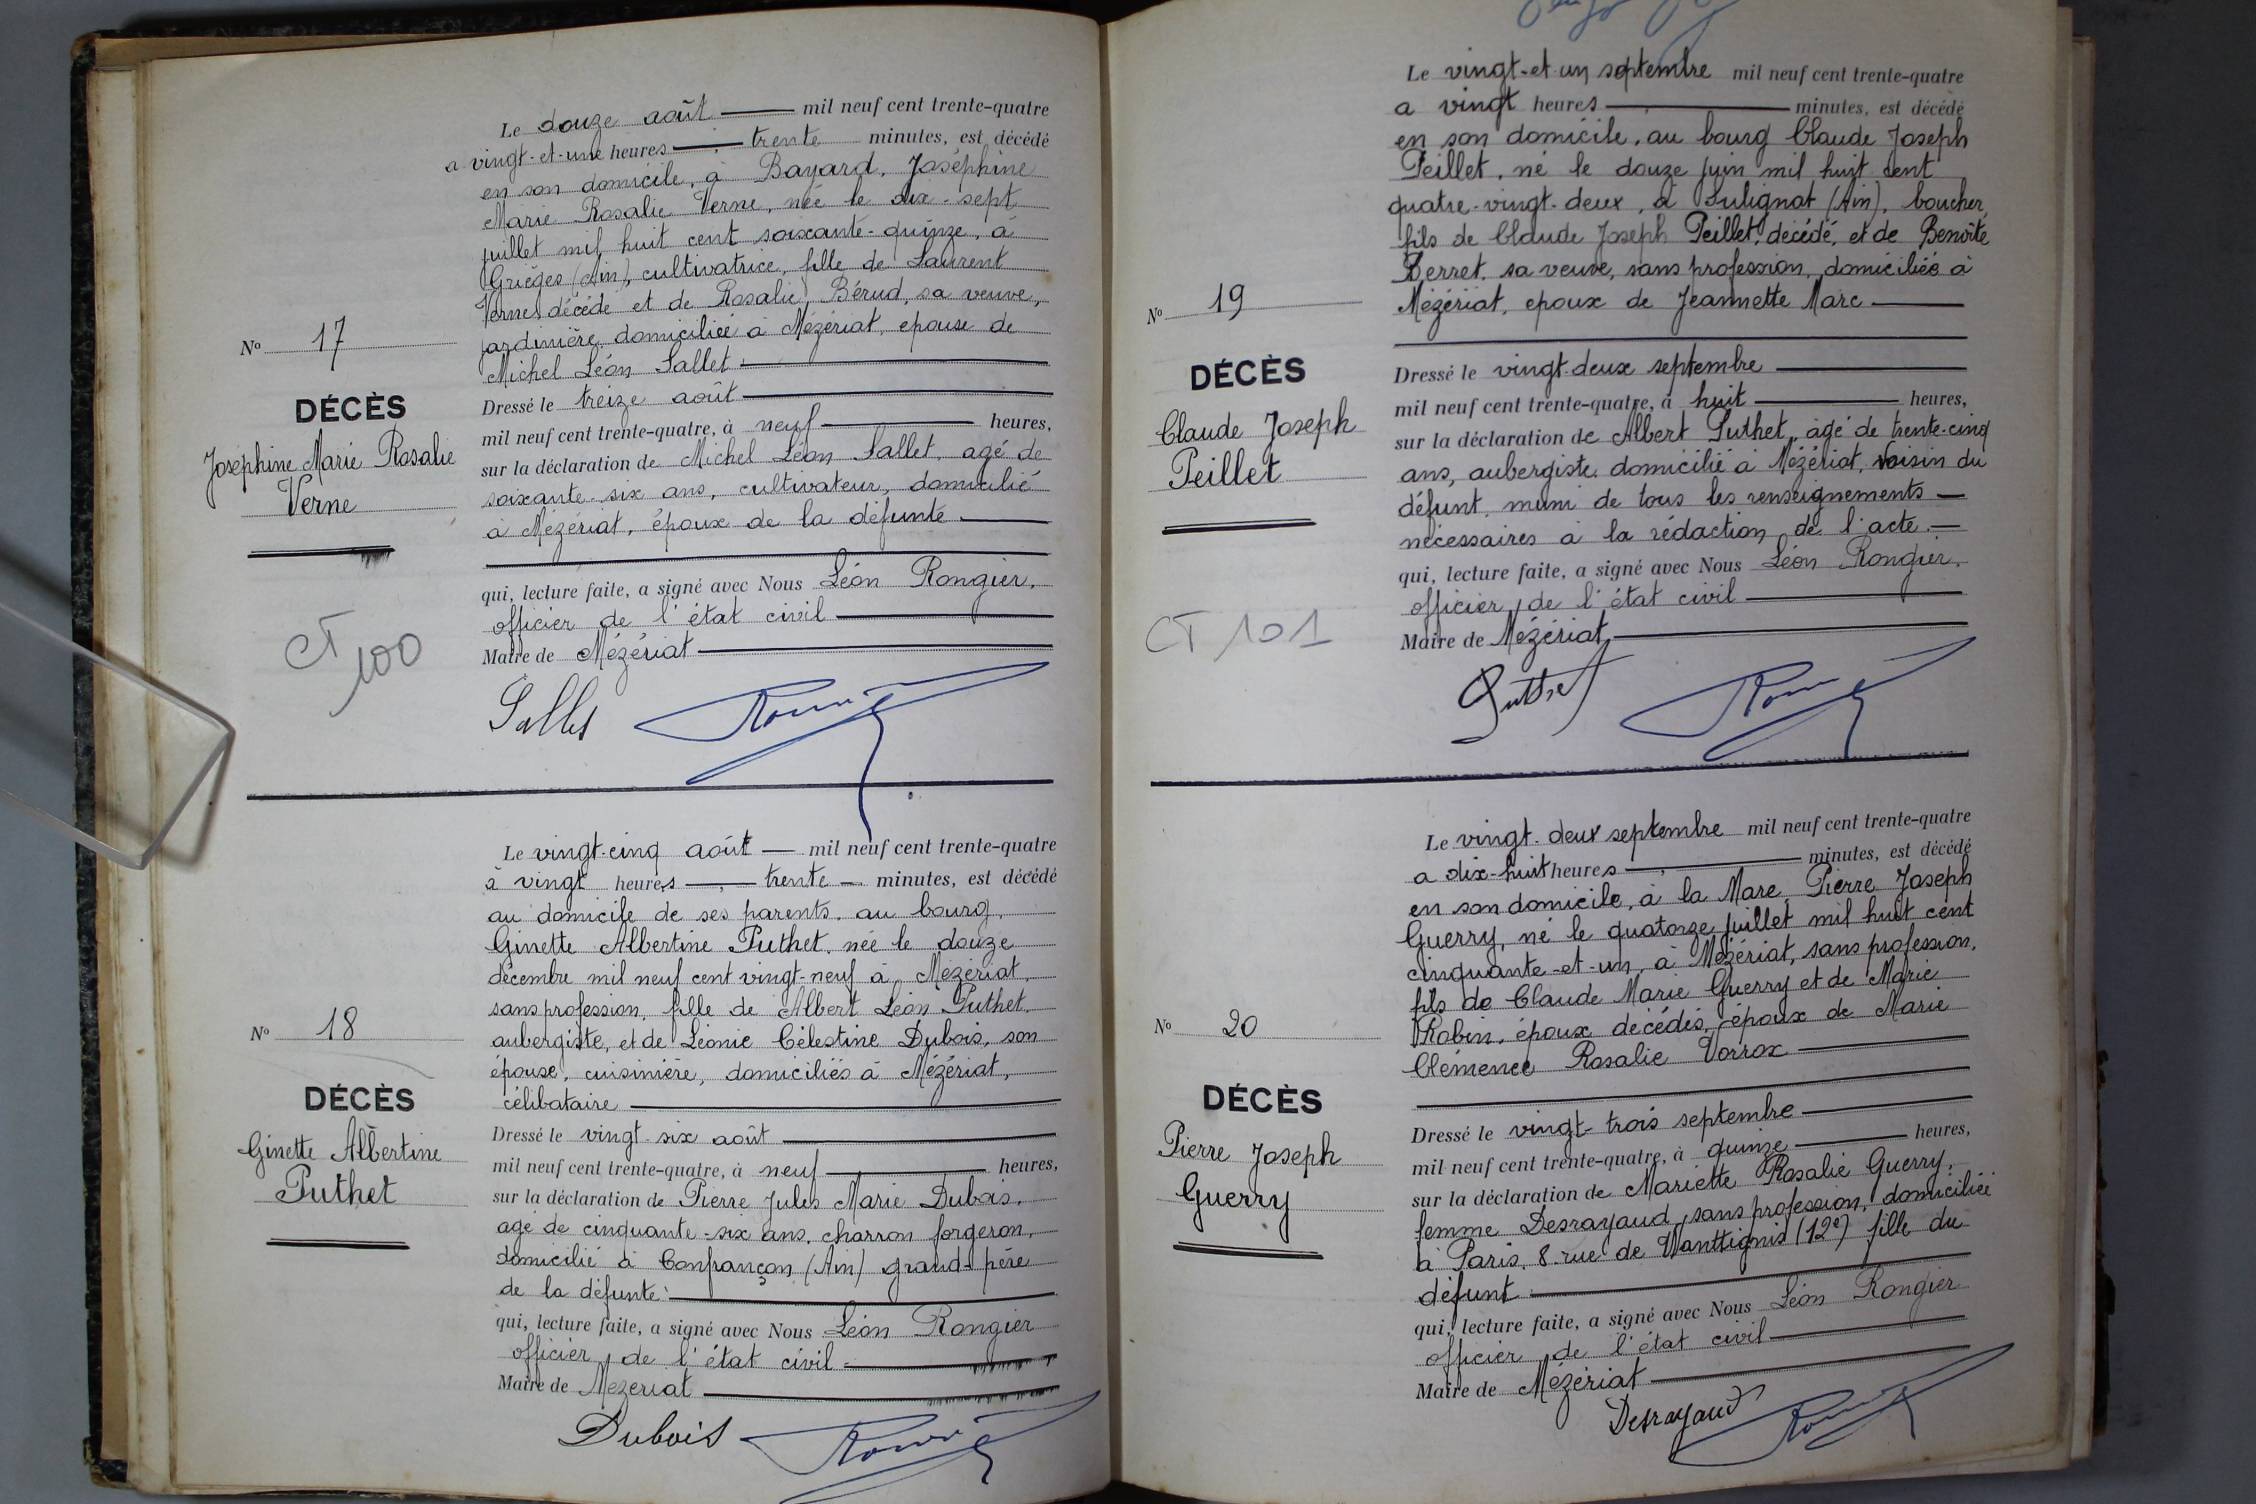 Le douze août mil neuf cent trente-quatre
a vingt-et-une heures trente minutes, est décédé
en son domicile, à Bayard, Joséphine
Marie Rosalie Verne, née le dix-sept
juillet mil huit cent soixante-quinze, à
Grièges (Ain), cultivatrice, fille de Laurent
Verne décédé et de Rosalie Bérud, sa veuve,
jardinière, domiciliée à Mézériat, épouse de
Michel Léon Sallet
Nº 17
DÉCÈS
Joséphine Marie Rosalie
Verne
CT 100
Dressé le treize août
mil neuf cent trente-quatre, à neuf heures,
sur la déclaration de Michel Léon Sallet, agé de
soixante-six ans, cultivateur, domicilié
à Mézériat, époux de la défunte
qui, lecture faite, a signé avec Nous Léon Rongier,
officier de l'état civil
Maire de Mézériat
Le vingt-cinq août mil neuf cent trente-quatre
à vingt heures trente minutes, est décédé
au domicile de ses parents, au bourg,
Ginette Albertine Puthet, née le douze
décembre mil neuf cent vingt-neuf à Mézériat,
sans profession, fille de Albert Léon Puthet,
aubergiste, et de Léonie Célestine Dubois, son
épouse, cuisinière, domiciliés à Mézériat,
célibataire
Nº 18
DÉCÈS
Ginette Albertine
Puthet
Dressé le vingt-six août
mil neuf cent trente-quatre, à neuf heures,
sur la déclaration de Pierre Jules Marie Dubois,
agé de cinquante-six ans, charron forgeron,
domicilié à Confrançon (Ain) grand-père
de la défunte
qui, lecture faite, a signé avec Nous Léon Rongier
officier de l'état civil
Maire de Mézériat
Dubois
Le vingt-et-un septembre mil neuf cent trente-quatre
a vingt heures minutes, est décédé
en son domicile, au bourg Claude Joseph
Peillet, né le douze juin mil huit cent
quatre-vingt-deux, à Sulignat (Ain), boucher,
fils de Claude Joseph Peillet, décédé, et de Benoîte
Perret, sa veuve, sans profession, domiciliée à
Mézériat, époux de Jeannette Marc
Nº 19
DÉCÈS
Claude Joseph
Peillet
CT 101
Dressé le vingt-deux septembre
mil neuf cent trente-quatre, à huit heures,
sur la déclaration de Albert Puthet, agé de trente-cinq
ans, aubergiste, domicilié à Mézériat, voisin du
défunt, muni de tous les renseignements
nécessaires à la rédaction de l'acte.
qui, lecture faite, a signé avec Nous Léon Rongier,
officier de l'état civil
Maire de Mézériat
Puthet
Le vingt-deux septembre mil neuf cent trente-quatre
a dix-huit heures minutes, est décédé
en son domicile, à la Mare, Pierre Joseph
Guerry, né le quatorze juillet mil huit cent
cinquante-et-un, à Mézériat, sans profession,
fils de Claude Marie Guerry et de Marie
Robin, époux décédés, époux de Marie
Clémence Rosalie Vorrox
Nº 20
DÉCÈS
Pierre Joseph
Guerry
Dressé le vingt-trois septembre
mil neuf cent trente-quatre, à quinze heures,
sur la déclaration de Mariette Rosalie Guerry,
femme Desrayaud, sans profession, domiciliée
à Paris, 8, rue de Wanttignis (12e) fille du
défunt
qui, lecture faite, a signé avec Nous Léon Rongier
officier de l'état civil
Maire de Mézériat
Desrayaud